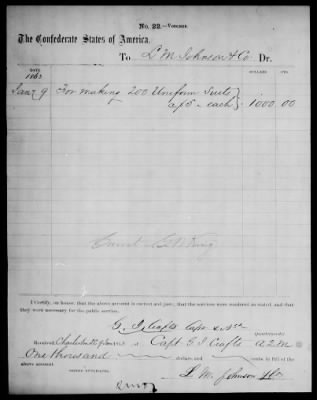 No. 22.—Voucher.
The Confederate States of America,
To L M Johnson & Co Dr.
DATE DOLLARS CTS.
1863
Jany 9 For making 200 Uniform Suits
a $5 each 1000 00
Correct
I Certify, on honor, that the above account is correct and just; that the services were rendered as stated, and that
they were necessary for the public service.
G. I. Crafts Capt
Quartermaster.
Received Charleston of Capt G I Crafts A2M
One thousand dollars, and cents, in full of the
above account.
[SIGNED DUPLICATES.]
L. M. Johnson & Co